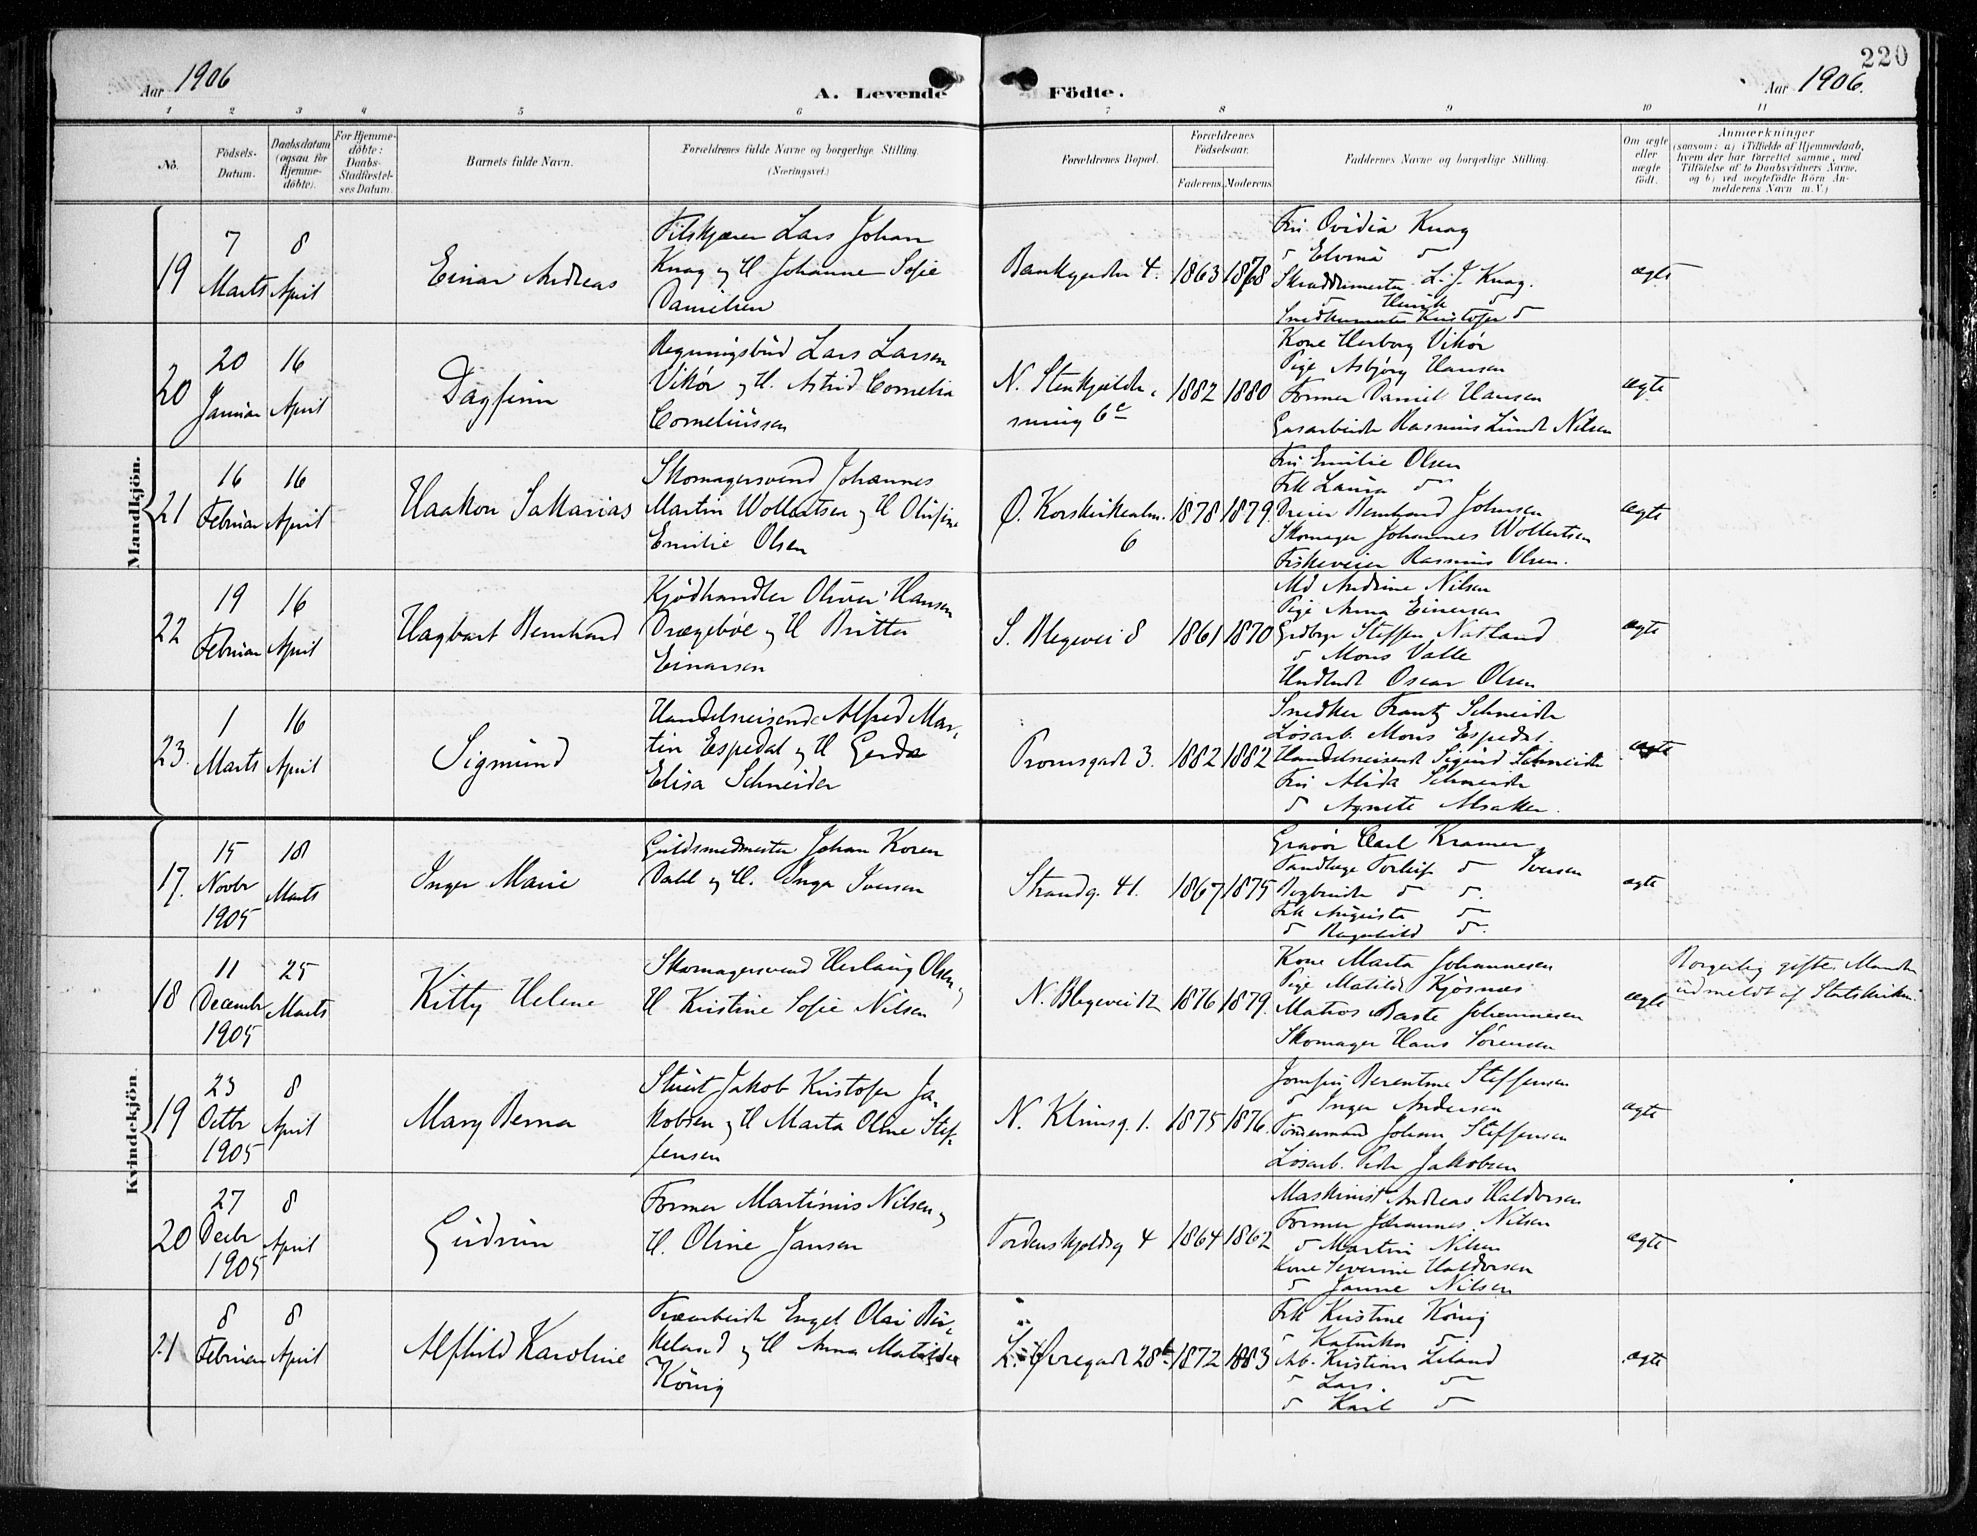 220
Aar 1906
A. Levende Födte.
Aar 1906.
1 2 3 4 5 6 7 8 9 10 11
No.
Födsels-
Datum.
Daabsdatum
(ogsaa for
Hjemme-
döbte).
For Hjemme-
döbte:
Daabs-
Stadfæstel-
ses Datum.
Barnets fulde Navn.
Forældrenes fulde Navne og borgerlige Stilling.
(Næringsvei.)
Forældrenes Bopæl.
Forældrenes
Födselsaar.
Faderens. Moderens.
Faddernes Navne og borgerlige Stilling.
Om ægte
eller
uægte
födt.
Anmærkninger
(saasom: a) (Tilfælde af Hjemmedaab,
hvem der har forrettet samme, med
Tilföielse af to Daabsvidners Navne.
og b) ved uægtefödte Börn An-
melderens Navn m. V.)
Mandkjön.
19
7
Marts
8
April
Einar Andreas
Lars Johan
Knag og H. Johanne Sofie
Danielsen
Bankgaden 4.
1863
1868
Fru Ovidia Knag
" Elvina "
Skræddermester L. J. Knag.
" Henrik "
Snedkermester Kristofer "
ægte
20
20
Januar
16
April
Dagfinn
Regningsbud Lars Larsen
Vikör og H. Astrid Cornelia
Corneliussen
N. Stenkjelder-
smug 6c
1882
1880
Kone Herborg Vikör
Pige Asbjörg Hansen
Former Daniel Hansen
Gasarbeider Rasmus Lunde Nilsen
ægte
21
16
Februar
16
April
Haakon Sakarias
Skomagersvend Johannes
Martin Wollertsen og H Olufine
Emilie Olsen
Ø. Korskirkealm.
6
1878
1879.
Fru Emilie Olsen
Frk Laura "
Dreier Bernhard Johnsen
Skomager Johannes Wollertsen
Fiskeveier Rasmus Olsen.
ægte
22
19
Februar
16
April
Hagbart Bernhard
Kjödhandler Oliver Hansen
Drægeböe og H Britta
Einarsen
S. Blegevei 8
1861
1870
Md Andrine Nilsen
Pige Anna Einersen
Grdbrgr Steffen Natland
" Mons Valle
Oscar Olsen
ægte
23.
1
Marts
16
April
Sigmund
Handelsreisende Alfred Mar-
tin Espedal og H Gerda
Elisa Schneider
Promsgade 3.
1882
1882
Snedker Frantz Schneider
Lösarb. Mons Espedal.
Handelsreisende Sigurd Schneider
Fru Alida Schneider
" Agnete Alsaker.
ægte
Kvindekjön.
17.
15
Novbr
1905
18
Marts
Inger Marie
Guldsmedmester Johan Koren
Dahl og H. Inga Iversen
Strandg. 41.
1867
1875
Gravör Carl Kramer
Tandlæge Torleif " Iversen
Bogbinder " "
Frk Augusta "
" Ragnhild "
ægte
18
11
Decembr
1905
25
Marts
Kitty Helene
Skomagersvend Herlaug Olsen og
H Kristine Sofie Nilsen
N. Blegevei 12
1876
1879.
Kone Marta Johannesen
Pige Matilde Kjösnæs
Matros Baste Johannesen
Skomager Hans Sörensen
ægte
Borgerlig gifte. Manden
udmeldt af Statskirken.
19
23
Octbr
1905
8
April
Mary Berna
Stuert Jakob Kristofer Ja-
kobsen og H Marta Oline Stef-
fensen
N. Klimsg. 1.
1875
1876.
Jomfru Berentine Steffensen
" Inger Andersen
Tömmermand Johan Steffensen
Lösarb. Peder Jakobsen
ægte
20
27
Decbr
1905
8
April
Gudrun
Former Martinus Nilsen og
H. Oline Jansen
Tordenskjoldsg 4
1864
1862
Maskinist Andreas Haldorsen
Former Johannes Nilsen
" Martin Nilsen
Kone Severine Haldorsen
" Janne Nilsen
ægte
21
8
Februar
8
April
Alfhild Karoline
Træarbeider Engel Olai Bir-
keland og H Anna Matilde
König
L. Øvregade 28b
1872
1883
Frk Kristine König
" Katinka "
Arb. Kristian Leland
" Lars. "
" Karl "
ægte